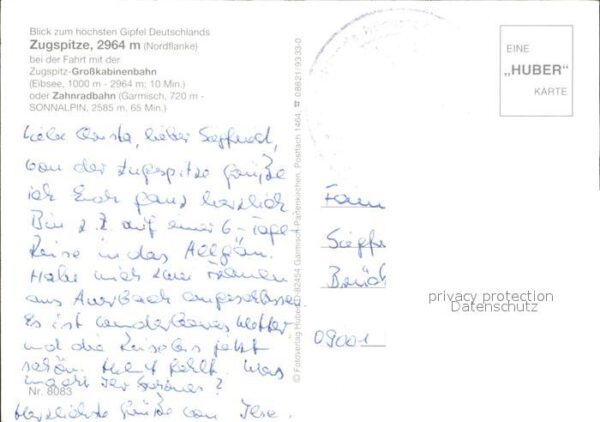 Blick zum höchsten Gipfel Deutschlands
Zugspitze, 2964 m (Nordflanke)
bei der Fahrt mit der
Zugspitz-Großkabinenbahn
(Eibsee, 1000 m - 2964 m; 10 Min.)
oder Zahnradbahn (Garmisch, 720 m -
SONNALPIN, 2585 m, 65 Min.)
Liebe Christa, lieber Siegfried,
von der Zugspitze grüße
ich Euch ganz herzlich
Bin z.Z. auf einer 6-Tage-
Reise in das Allgäu.
Habe mich zwei Frauen
aus Auerbach angeschlossen.
Es ist wunderbares Wetter
und die Reise ist
schön. fehlt. Was
macht Ihr ?
Nr. 8083
Herzlichste Grüße von Ilse.
© Fotoverlag Huber 82454 Garmisch-Partenkirchen, Postfach 1464, ☎ 08821/9333-0
EINE
„HUBER"
KARTE
Fam
Siegfr
Brück
privacy protection
Datenschutz
09001